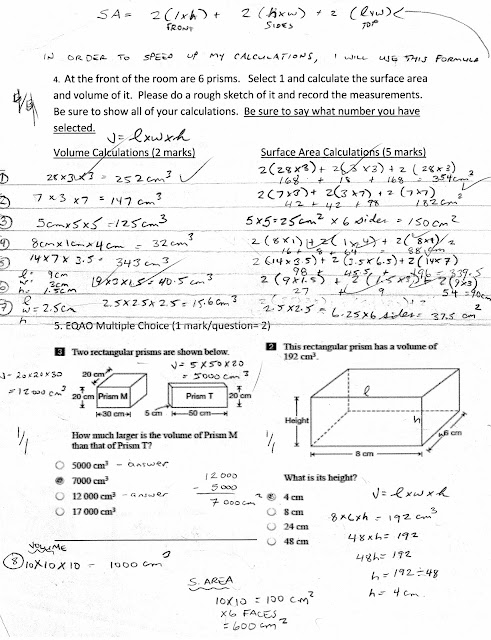 SA = 2(lxh) + 2(hxw) + 2(lxw)
FRONT SIDES TOP
IN ORDER TO SPEED UP MY CALCULATIONS, I WILL USE THIS FORMULA
4. At the front of the room are 6 prisms. Select 1 and calculate the surface area
and volume of it. Please do a rough sketch of it and record the measurements.
Be sure to show all of your calculations. Be sure to say what number you have
selected.
V = lxwxh
Volume Calculations (2 marks) Surface Area Calculations (5 marks)
① 28x3x3 = 252cm³ 2(28x3) + 2(3x3) + 2(28x3)
168 + 18 + 168 = 354cm²
② 7x3x7 = 147cm³ 2(7x3) + 2(3x7) + 2(7x7)
42 + 42 + 98 182cm²
③ 5cmx5x5 = 125cm³ 5x5 = 25cm² x 6 sides = 150cm²
④ 8cmx1cmx4cm = 32cm³ 2(8x1) + 2(1x4) + 2(8x4)
16 + 8 + 64 88
⑤ 14x7x3.5 = 343cm³ 2(14x3.5) + 2(3.5x6.5) + 2(14x7)
98 + 45.5 + 196 = 339.5
l: 9cm
w: 3cm
h: 1.5cm
⑥ 9x1.5 = 40.5cm³ 2(9x1.5) + 2(1.5x3) + 2(9x3)
27 9 54 = 90cm
⑦ w = 2.5cm 2.5x2.5x2.5 = 15.6cm³ 2.5x2.5 = 6.25x6 sides = 37.5cm²
5. EQAO Multiple Choice (1 mark/question= 2)
3 Two rectangular prisms are shown below.
V = 5x50x20
= 5000cm³
V = 20x20x30
= 12000cm³
20 cm
20 cm Prism M Prism T 20 cm
30 cm 5 cm 50 cm
1/1
How much larger is the volume of Prism M
than that of Prism T?
5000 cm³ - answer
7000 cm³
12 000 cm³ - answer
17 000 cm³
12000
- 5000
7000cm
VOLUME
⑧ 10x10x10 = 1000cm³
S. AREA
10x10 = 100cm²
x6 FACES
= 600cm²
2 This rectangular prism has a volume of
192 cm³.
l
h
Height
6 cm
8 cm
1/1
What is its height?
4 cm
8 cm
24 cm
48 cm
V = lxwxh
8x6xh = 192cm³
48xh = 192
48h = 192
h = 192÷48
h = 4cm